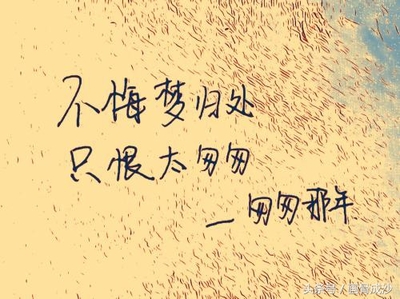 不悔梦归处
只恨太匆匆
—匆匆那年
头条号 /